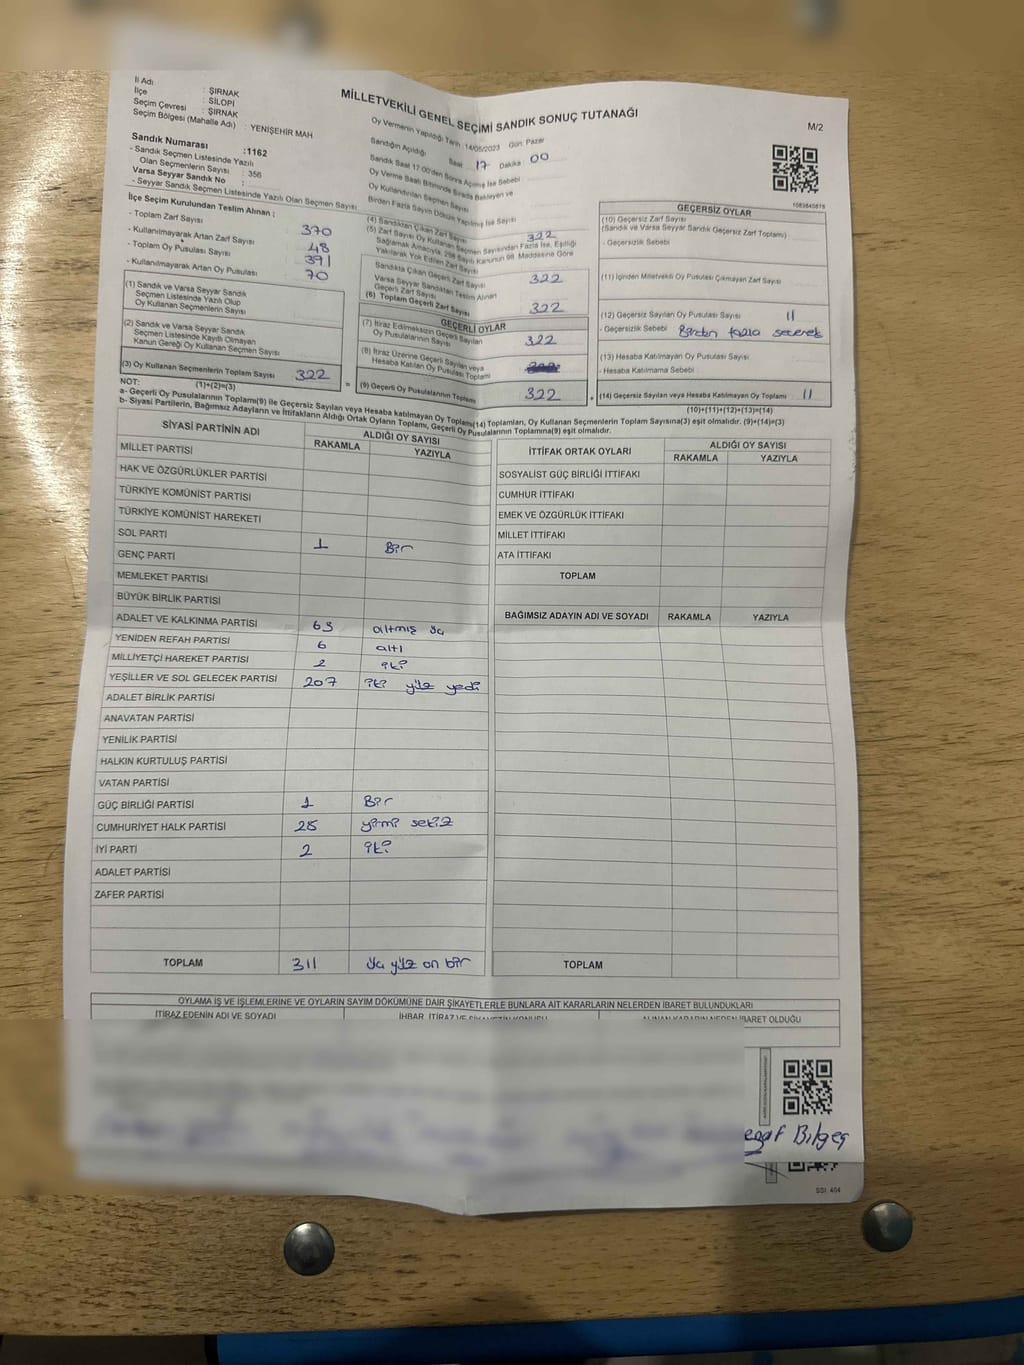 MİLLETVEKİLİ GENEL SEÇİMİ SANDIK SONUÇ TUTANAĞI
M/2
İl Adı : ŞIRNAK
İlçe : SİLOPİ
Seçim Çevresi : ŞIRNAK
Seçim Bölgesi (Mahalle Adı) : YENİŞEHİR MAH
Sandık Numarası :1162
- Sandık Seçmen Listesinde Yazılı
Olan Seçmenlerin Sayısı : 356
Varsa Seyyar Sandık No :
- Seyyar Sandık Seçmen Listesinde Yazılı Olan Seçmen Sayısı
Oy Vermenin Yapıldığı Tarih :14/05/2023 Gün: Pazar
Sandığın Açıldığı Saat 17 Dakika 00
Sandık Saat 17:00'den Sonra Açılmış İse Sebebi
Oy Verme Saati Bitiminde Sırada Bekleyen ve
Oy Kullandırılan Seçmen Sayısı
Birden Fazla Sayım Döküm Yapılmış İse Sayısı
İlçe Seçim Kurulundan Teslim Alınan :
- Toplam Zarf Sayısı 370
- Kullanılmayarak Artan Zarf Sayısı 48
- Toplam Oy Pusulası Sayısı 391
- Kullanılmayarak Artan Oy Pusulası 70
(1) Sandık ve Varsa Seyyar Sandık
Seçmen Listesinde Yazılı Olup
Oy Kullanan Seçmenlerin Sayısı
(2) Sandık ve Varsa Seyyar Sandık
Seçmen Listesinde Kayıtlı Olmayan
Kanun Gereği Oy Kullanan Seçmen Sayısı
(3) Oy Kullanan Seçmenlerin Toplam Sayısı 322
(1)+(2)=(3)
(4) Sandıktan Çıkan Zarf Sayısı 322
(5) Zarf Sayısı Oy Kullanan Seçmen Sayısından Fazla İse, Eşitliği
Sağlamak Amacıyla, 298 Sayılı Kanunun 98. Maddesine Göre
Yakılarak Yok Edilen Zarf Sayısı
Sandıkta Çıkan Geçerli Zarf Sayısı 322
Varsa Seyyar Sandıktan Teslim Alınan
Geçerli Zarf Sayısı
(6) Toplam Geçerli Zarf Sayısı 322
GEÇERLİ OYLAR
(7) İtiraz Edilmeksizin Geçerli Sayılan
Oy Pusulalarının Sayısı 322
(8) İtiraz Üzerine Geçerli Sayılan veya
Hesaba Katılan Oy Pusulası Toplamı
= (9) Geçerli Oy Pusulalarının Toplamı 322
1083645875
GEÇERSİZ OYLAR
(10) Geçersiz Zarf Sayısı
(Sandık ve Varsa Seyyar Sandık Geçersiz Zarf Toplamı)
- Geçersizlik Sebebi
(11) İçinden Milletvekili Oy Pusulası Çıkmayan Zarf Sayısı
(12) Geçersiz Sayılan Oy Pusulası Sayısı 11
- Geçersizlik Sebebi Birden fazla seçerek
(13) Hesaba Katılmayan Oy Pusulası Sayısı
- Hesaba Katılmama Sebebi
+ (14) Geçersiz Sayılan veya Hesaba Katılmayan Oy Toplamı 11
(10)+(11)+(12)+(13)=(14)
NOT:
a- Geçerli Oy Pusulalarının Toplamı(9) ile Geçersiz Sayılan veya Hesaba katılmayan Oy Toplamı(14) Toplamları, Oy Kullanan Seçmenlerin Toplam Sayısına(3) eşit olmalıdır. (9)+(14)=(3)
b- Siyasi Partilerin, Bağımsız Adayların ve İttifakların Aldığı Ortak Oyların Toplamı, Geçerli Oy Pusulalarının Toplamına(9) eşit olmalıdır.
SİYASİ PARTİNİN ADI ALDIĞI OY SAYISI
RAKAMLA YAZIYLA
MİLLET PARTİSİ
HAK VE ÖZGÜRLÜKLER PARTİSİ
TÜRKİYE KOMÜNİST PARTİSİ
TÜRKİYE KOMÜNİST HAREKETİ
SOL PARTİ 1 Bir
GENÇ PARTİ
MEMLEKET PARTİSİ
BÜYÜK BİRLİK PARTİSİ
ADALET VE KALKINMA PARTİSİ 63 altmış üç
YENİDEN REFAH PARTİSİ 6 altı
MİLLİYETÇİ HAREKET PARTİSİ 2 iki
YEŞİLLER VE SOL GELECEK PARTİSİ 207 iki yüz yedi
ADALET BİRLİK PARTİSİ
ANAVATAN PARTİSİ
YENİLİK PARTİSİ
HALKIN KURTULUŞ PARTİSİ
VATAN PARTİSİ
GÜÇ BİRLİĞİ PARTİSİ 1 Bir
CUMHURİYET HALK PARTİSİ 28 yirmi sekiz
İYİ PARTİ 2 iki
ADALET PARTİSİ
ZAFER PARTİSİ
TOPLAM 311 üç yüz on bir
İTTİFAK ORTAK OYLARI ALDIĞI OY SAYISI
RAKAMLA YAZIYLA
SOSYALİST GÜÇ BİRLİĞİ İTTİFAKI
CUMHUR İTTİFAKI
EMEK VE ÖZGÜRLÜK İTTİFAKI
MİLLET İTTİFAKI
ATA İTTİFAKI
TOPLAM
BAĞIMSIZ ADAYIN ADI VE SOYADI RAKAMLA YAZIYLA
TOPLAM
OYLAMA İŞ VE İŞLEMLERİNE VE OYLARIN SAYIM DÖKÜMÜNE DAİR ŞİKAYETLERLE BUNLARA AİT KARARLARIN NELERDEN İBARET BULUNDUKLARI
İTİRAZ EDENİN ADI VE SOYADI İHBAR, İTİRAZ VE ŞİKAYETİN KONUSU ALINAN KARARIN NEDEN İBARET OLDUĞU
Bilgeş
SSI: 404